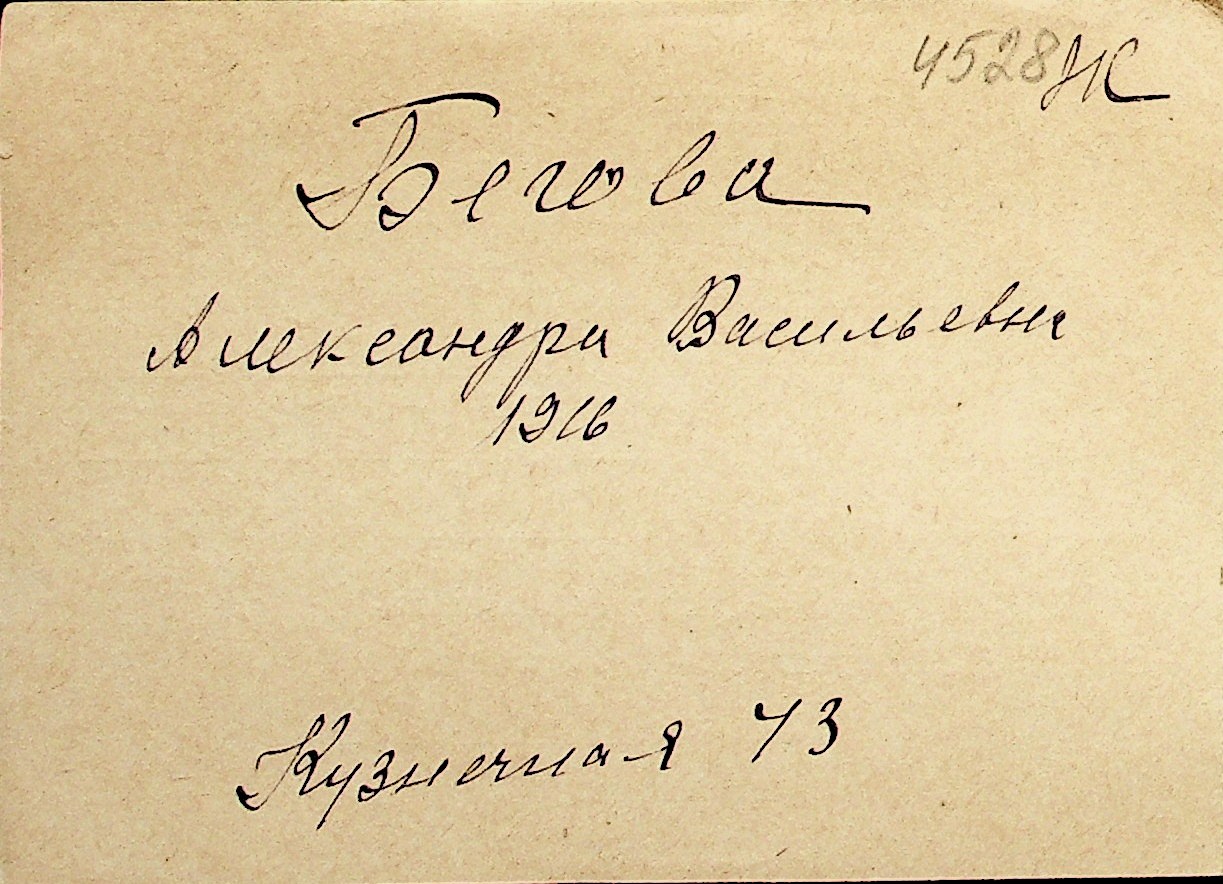 4528 Ж
Бегова
Александра Васильевна
1916
Кузнечная 43